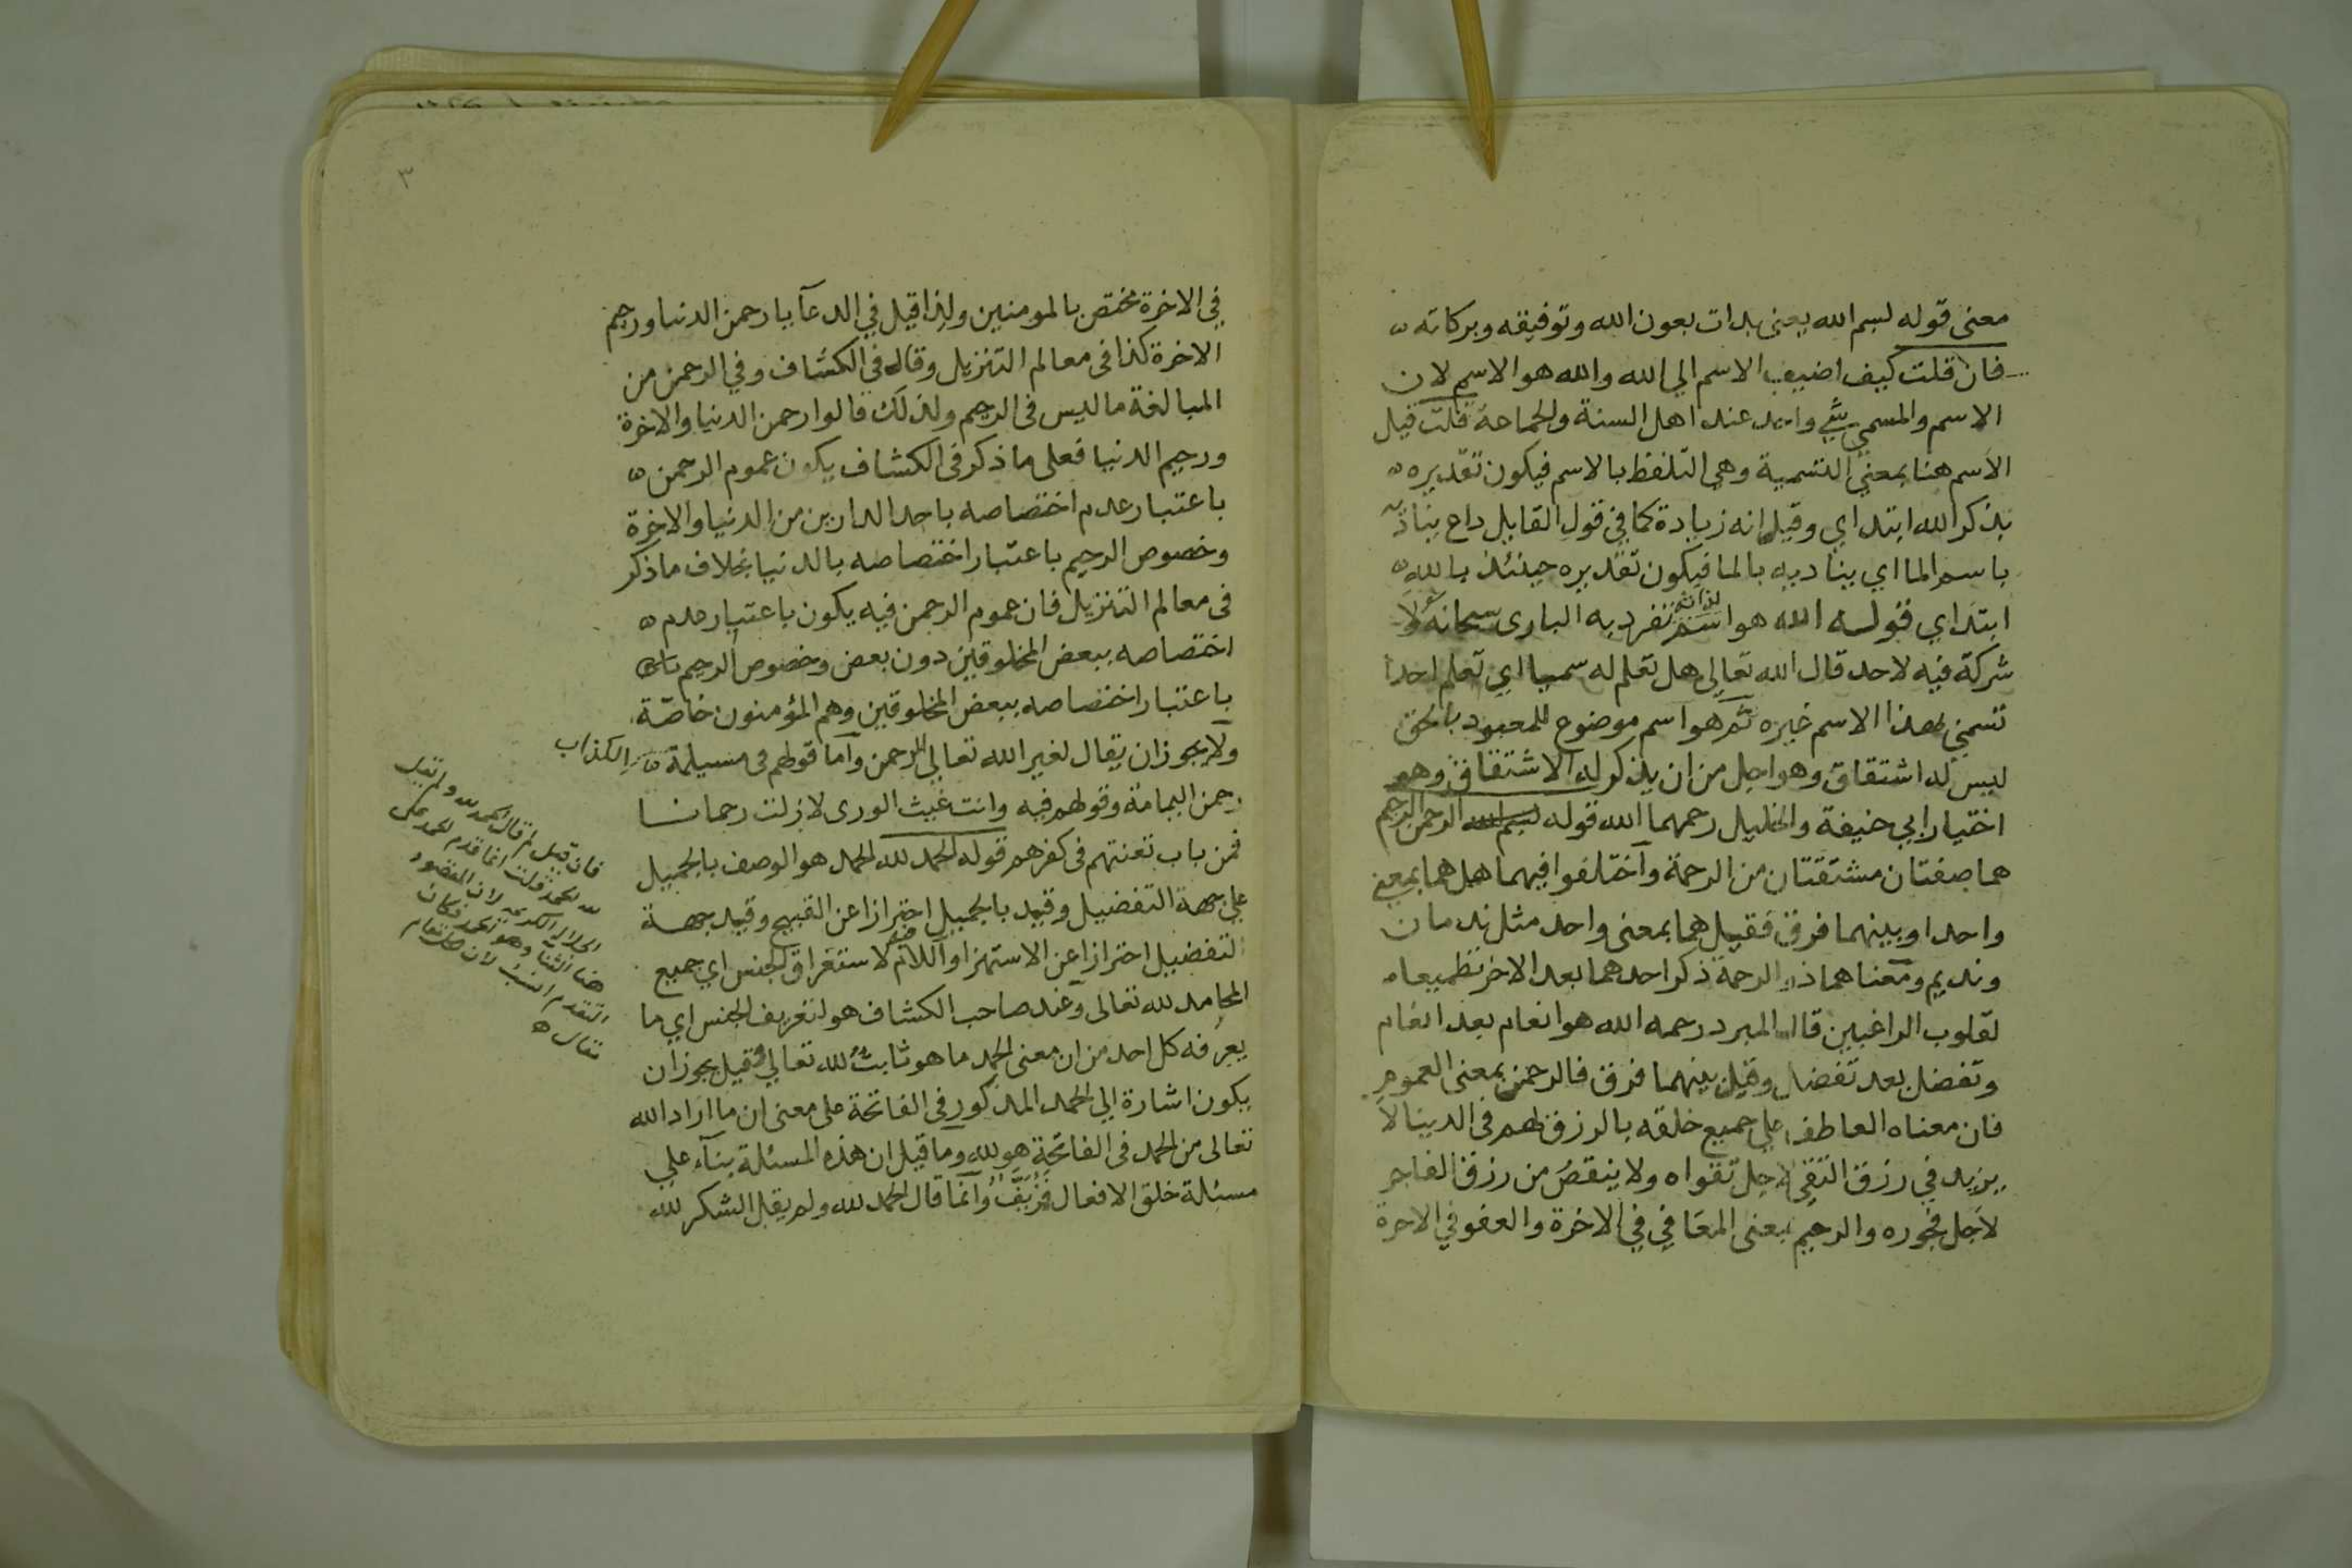 معنى قوله لبسم الله يعنى بدات بعون الله وتوفيقه وبركاته
فان قلت كيف اضيف الاسم الي الله والله هو الاسم لان
الاسم والمسمى شي واحد عند اهل السنة والجماعة قلت قيل
الاسم هنا بمعنى التسمية وهي التلفظ بالاسم فيكون تقديره
بذكر الله ابتداي وقيل انه زيادة كما في قول القايل داع يناد
باسم الما اي يناديه بالما فيكون تقديره حينئذ بالله
ابتداي قوله الله هو اسم تفرد به البارى سبحانه لا
شركة فيه لاحد قال الله تعالى هل تعلم له سميا اي تعلم احدا
تسمي بهذا الاسم غيره ثم هو اسم موضوع للمعبود بالحق
ليس له اشتقاق وهو اجل من ان يذكر له الاشتقاق وهو
اختيار ابي حنيفة والخليل رحمهما الله قوله بسم الله الرحمن الرحيم
هما صفتان مشتقتان من الرحمة واختلفوا فيهما هل هما بمعنى
واحد او بينهما فرق فقيل هما بمعنى واحد مثل ندمان
ونديم ومعناهما ذو الرحمة ذكر احدهما بعد الاخر تطميعا
لقلوب الراغبين قال المبرد رحمه الله هو انعام بعد انعام
وتفضل بعد تفضل وقيل بينهما فرق فالرحمن بمعنى العموم
فان معناه العاطف على جميع خلقه بالرزق لهم فى الدينا لا
يزيد في رزق التقي لاجل تقواه ولا ينقص من رزق الفاجر
لاجل فجوره والرحيم بمعنى المعافي في الاخرة والعفو في الاخرة
٣
في الاخرة مختص بالمومنين ولذا قيل في الدعآ يا رحمن الدنيا ورحيم
الاخرة كذا فى معالم التنزيل وقال فى الكشاف وفي الرحمن من
المبالغة ما ليس فى الرحيم ولذلك قالوا رحمن الدنيا والاخرة
ورحيم الدنيا فعلى ما ذكر فى الكشاف يكون عموم الرحمن
باعتبار عدم اختصاصه باحد الدارين من الدنيا والاخرة
وخصوص الرحيم باعتبار اختصاصه بالدنيا بخلاف ما ذكر
فى معالم التنزيل فان عموم الرحمن فيه يكون باعتبار عدم
اختصاصه ببعض المخلوقين دون بعض وخصوص الرحيم
باعتبار اختصاصه ببعض المخلوقين وهم المؤمنون خاصّة
ولا يجوز ان يقال لغير الله تعالى الرحمن واما قولهم فى مسيلمة الكذاب
رحمن اليمامة وقولهم فيه وانت غيث الورى لا زلت رحمانا
فمن باب تعنتهم فى كفرهم قوله الحمد لله الحمد هو الوصف بالجميل
على جهة التفضيل وقيد بالجميل احترازا عن القبيح وقيد بجهة
التفضيل احترازا عن الاستهزا واللام لاستغراق الجنس اي جميع
المحامد لله تعالى وعند صاحب الكشاف هو لتعريف الجنس اي ما
يعرفه كل احد من ان معنى الحمد ما هو ثابت لله تعالى وقيل يجوز ان
يكون اشارة الي الحمد المذكور فى الفاتحة على معنى ان ما اراد الله
تعالى من الحمد فى الفاتحة هو لله وما قيل ان هذه المسئلة بنآء على
مسئلة خلق الافعال فزيف وانما قال الحمد لله ولم يقل الشكر لله
فان قيل لم قال الحمد لله ولم يقل
لله الحمد قلت انما قدم الحمد على
لان المقصود
هنا الثنا وهو الحمد فكان
التقدم انسب لان